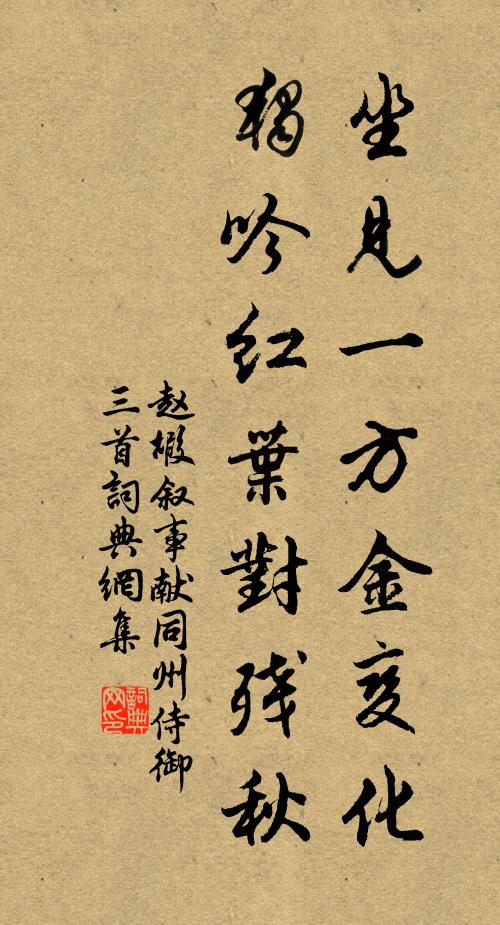 坐见一方金变化
独吟红葉對残秋
赵嘏叙事献同州侍御
三首詞典網集
詞典网印